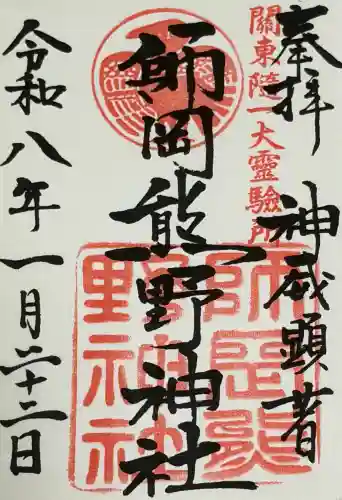 奉拝 神威顕著
關東隨一大靈驗所
師岡熊野神社
師岡熊野神社
令和八年一月二十二日